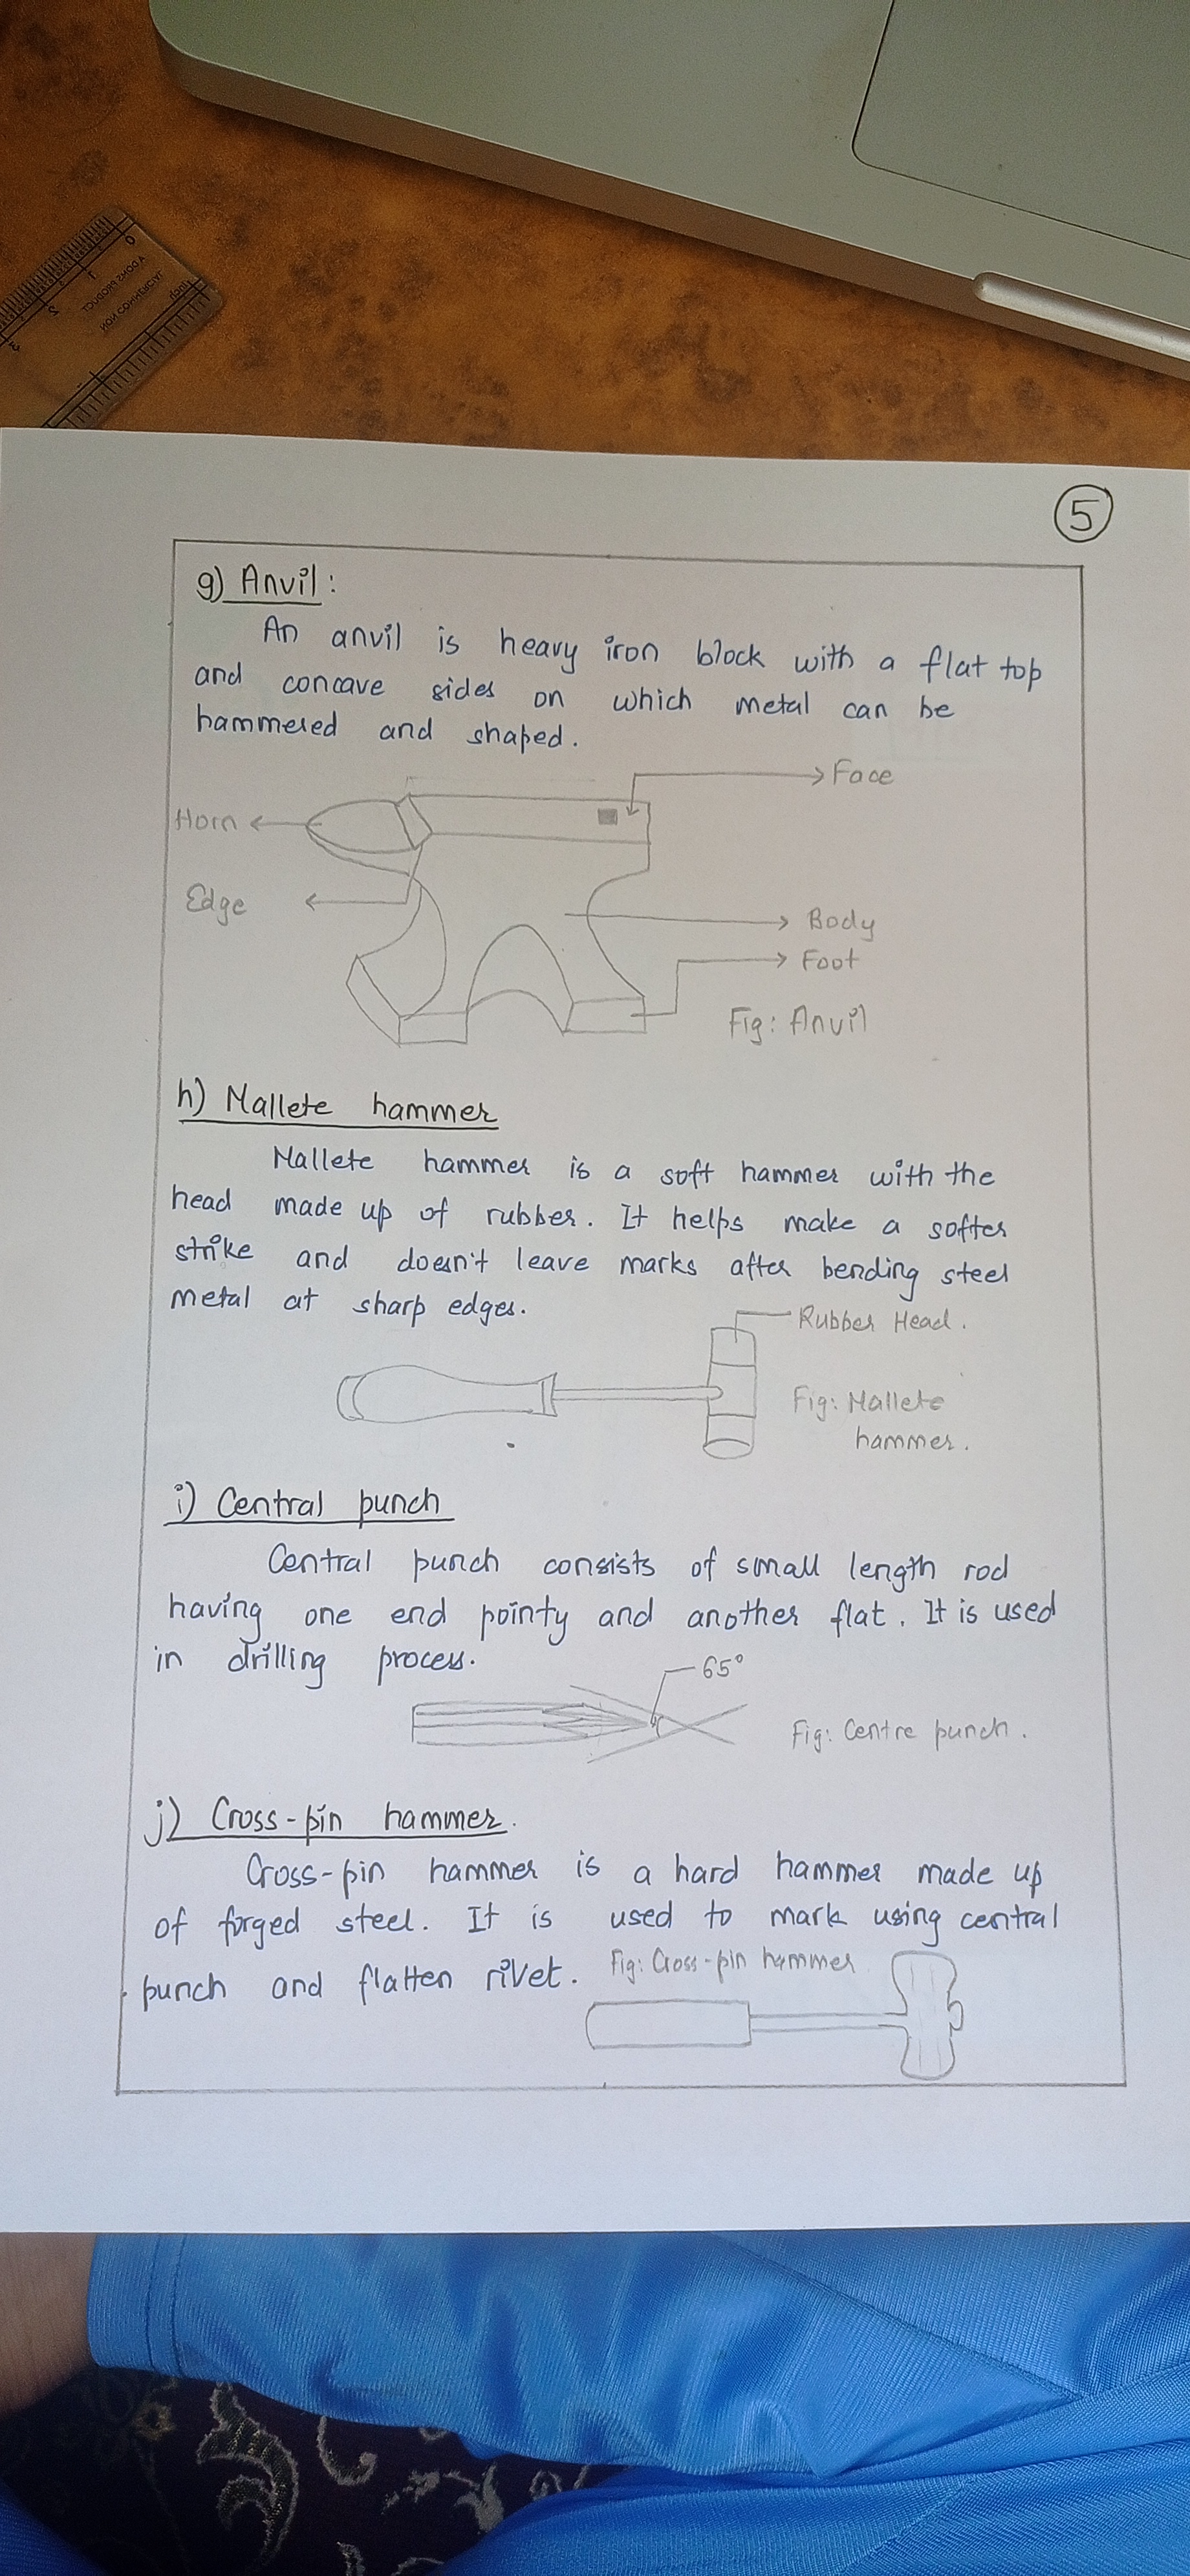 5
g) Anvil:
An anvil is heavy iron block with a flat top
and concave sides on which metal can be
hammered and shaped.
Face
Horn
Edge
Body
Foot
Fig: Anvil
h) Mallete hammer
Mallete hammer is a soft hammer with the
head made up of rubber. It helps make a softer
strike and doesn't leave marks after bending steel
metal at sharp edges.
Rubber Head.
Fig: Mallete
hammer.
i) Central punch
Central punch consists of small length rod
having one end pointy and another flat. It is used
in drilling process.
65°
Fig: Centre punch.
j) Cross-pin hammer.
Cross-pin hammer is a hard hammer made up
of forged steel. It is used to mark using central
punch and flatten rivet.
Fig: Cross-pin hammer